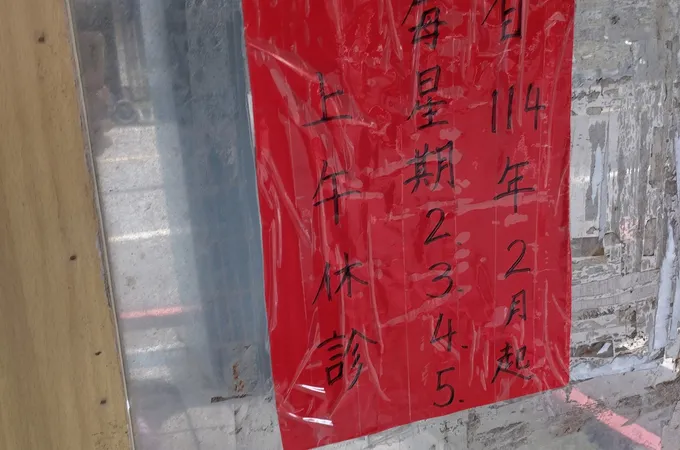 自114年2月起
每星期2.3.4.5.
上午休診